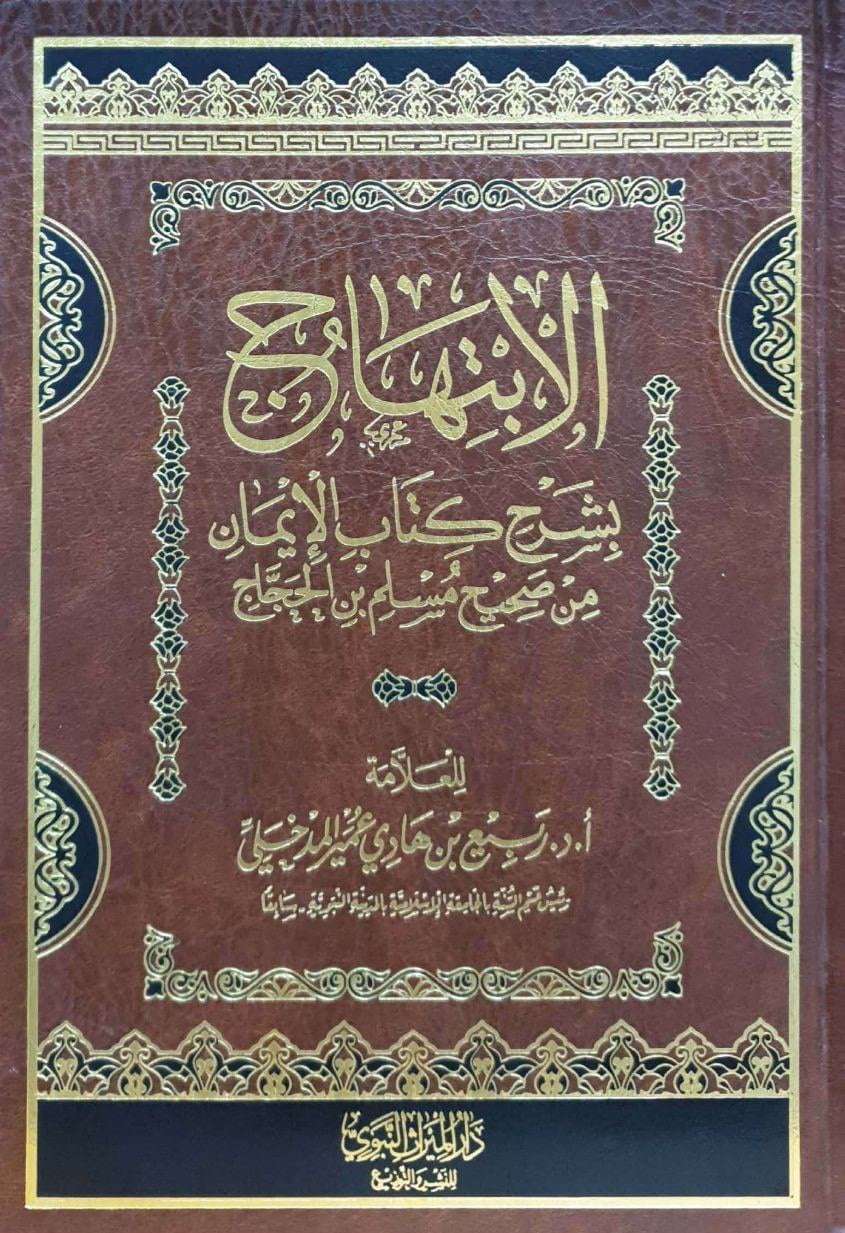 الِابْتِهَاجُ
بِشَرْحِ كِتَابِ الْإِيْمَانِ
مِنْ صَحِيْحِ مُسْلِمِ بْنِ الْحَجَّاجِ
لِلْعَلَّامَةِ
أ.د. رَبِيْعِ بْنِ هَادِي عُمَيْرِ الْمَدْخَلِيِّ
رئيس قسم السنة بالجامعة الإسلامية بالمدينة النبوية - سابقًا
دَارُ الْمِيْرَاثِ النَّبَوِيِّ
لِلنَّشْرِ وَالتَّوْزِيْعِ